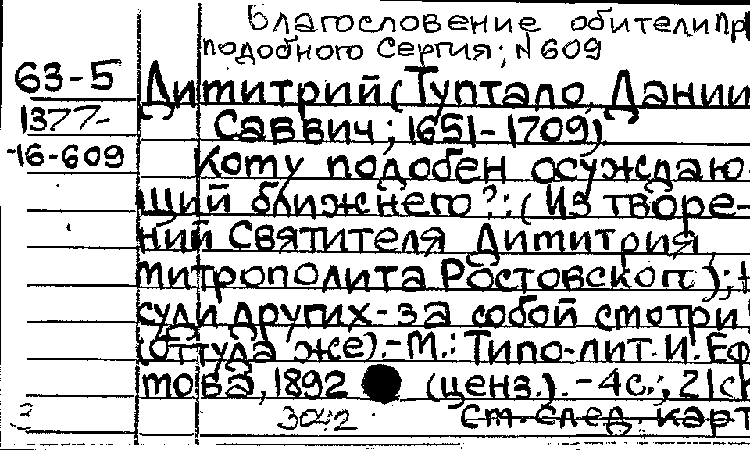 Благословение обители Пре
подобного Сергия; N 609
63-5 Димитрий (Туптало, Дании
1377- Саввич; 1651-1709)
16-609 Кому подобен осуждаю-
щий ближнего?: (Из творе-
ний Святителя Димитрия,
митрополита Ростовского);
суди других - за собой смотри!
(оттуда же). - М.: Типо-лит. И. Еф
мова, 1892 (ценз.). - 4 с.; 21 см
3042 См. след. карт